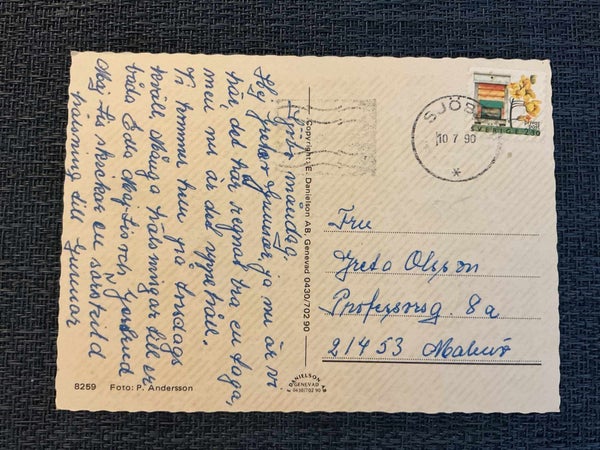 Sjöbo måndag.
Hej Greta o Gunnar, ja nu är vi
här, det har regnat bra en dag,
men nu är det uppehåll.
Vi kommer hem på tisdags
kväll. Många hälsningar till er
båda Eda Maj-Lis och Gertrud
Maj-Lis skickar en särskild
hälsning till Gunnar
Copyright: E. Danielson AB, Genevad 0430/702 90
SJÖBO
10 7 90
*
SVERIGE 2.50
Fru
Greta Olsson
Professorsg. 8a
21453 Malmö
8259 Foto: P. Andersson
DANIELSON AB
GENEVAD
0430/702 90